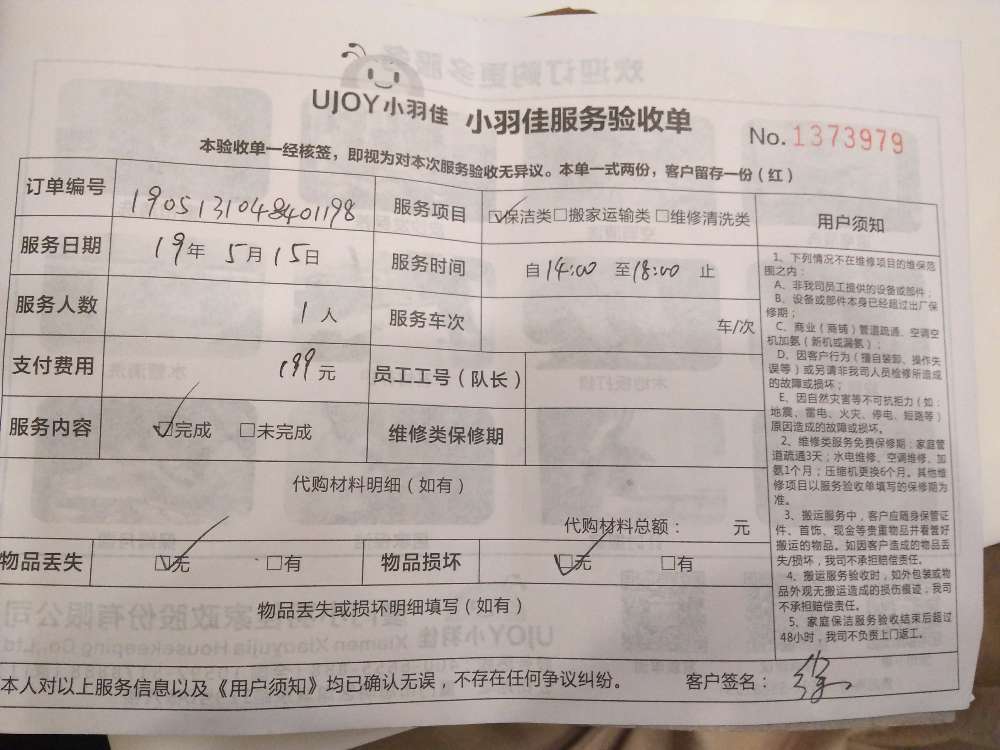 UJOY小羽佳 小羽佳服务验收单 No. 1373979
本验收单一经核签，即视为对本次服务验收无异议。本单一式两份，客户留存一份（红）
订单编号 190513104840 1198 服务项目 ☑保洁类□搬家运输类□维修清洗类
服务日期 19年 5月15日 服务时间 自14:00 至18:00 止
服务人数 1人 服务车次 车/次
支付费用 199元 员工工号（队长）
服务内容 ☑完成 □未完成 维修类保修期
代购材料明细（如有）
代购材料总额： 元
物品丢失 ☑无 □有 物品损坏 ☑无 □有
物品丢失或损坏明细填写（如有）
本人对以上服务信息以及《用户须知》均已确认无误，不存在任何争议纠纷。 客户签名：
用户须知
1、下列情况不在维修项目的维保范
围之内：
A、非我司员工提供的设备或部件；
B、设备或部件本身已经超过出厂保
修期；
C、商业（商铺）管道疏通、空调空
机加氨（新机或漏氨）；
D、因客户行为（擅自装卸、操作失
误等）或另请非我司人员检修所造成
的故障或损坏；
E、因自然灾害等不可抗拒力（如：
地震、雷电、火灾、停电、短路等）
原因造成的故障或损坏。
2、维修类服务免费保修期：家庭管
道疏通3天；水电维修、空调维修、加
氨1个月；压缩机更换6个月。其他维
修项目以服务验收单填写的保修期为
准。
3、搬运服务中，客户应随身保管证
件、首饰、现金等贵重物品并看管好
搬运的物品。如因客户造成的物品丢
失/损坏，我司不承担赔偿责任。
4、搬运服务验收时，如外包装或物
品外观无搬运造成的损伤痕迹，我司
不承担赔偿责任。
5、家庭保洁服务验收结束后超过
48小时，我司不负责上门返工。